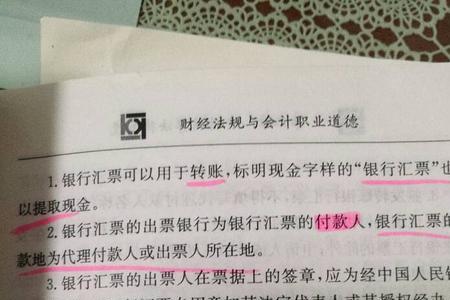 财经法规与会计职业道德
1.银行汇票可以用于转账,标明现金字样的“银行汇票”也
以提取现金。
2.银行汇票的出票银行为银行汇票的付款人,银行汇票的
款地为代理付款人或出票人所在地。
3.银行汇票的出票人在票据上的签章,应为经中国人民银